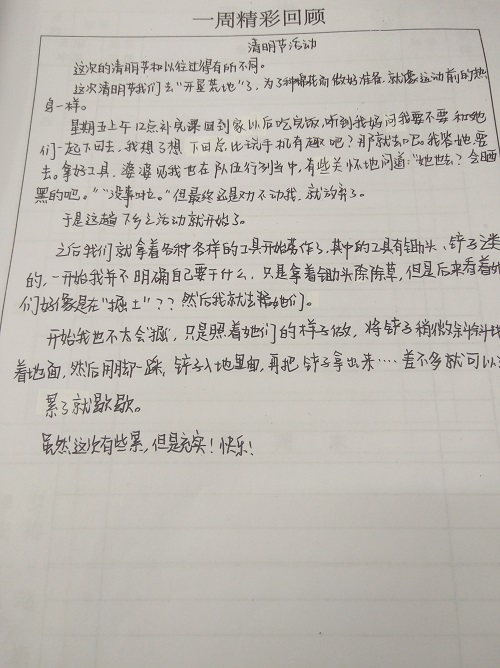 一周精彩回顾
清明节活动
这次的清明节和以往过得有所不同。
这次清明节我们去“开垦荒地”了，为了种棉花而做好准备，就像运动前的热
身一样。
星期五上午12点补完课回到家以后吃完饭，听到我妈问我要不要和她
们一起下田去，我想了想 下田总比玩手机有趣吧？那就去吧。我答她：要
去。拿好工具，婆婆见我也在队伍行列当中，有些关怀地问道：“她也去？会晒
黑的吧。”“没事啦。”但最终还是劝不动我，就放弃了。
于是这趟下乡之活动就开始了。
之后我们就拿着各种各样的工具开始劳作了，其中的工具有锄头、铲子之类
的，一开始我并不明确自己要干什么，只是拿着锄头除除草，但是后来看着她
们好像是在“掘土”？？然后我就去帮她们。
开始我也不太会“掘”，只是照着她们的样子做，将铲子稍微斜斜地
着地面，然后用脚一踩，铲子入地里面，再把铲子拿出来····差不多就可以
累了就歇歇。
虽然这次有些累，但是充实！快乐！